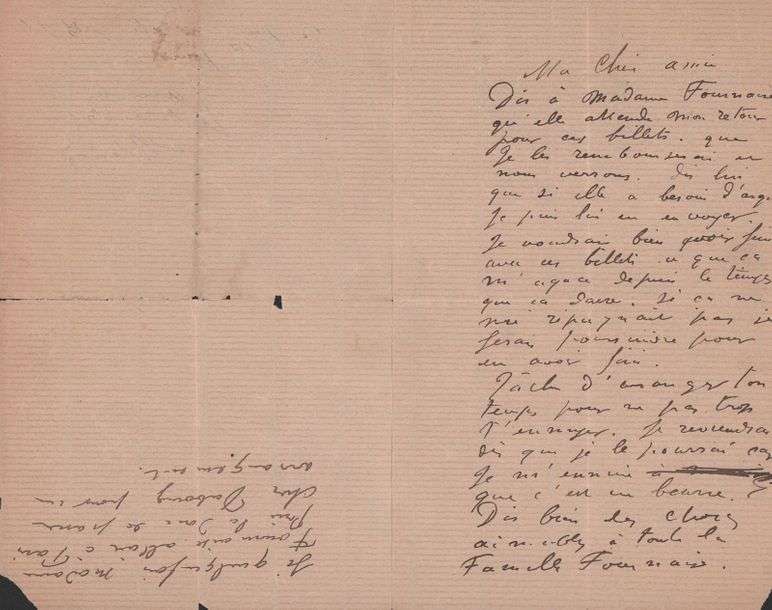 Ma Cher amie
Dis à Madame Fournaise
qu'elle attende mon retour
pour ces billets. que
Je les rembourserai en
nous verrons. Dis lui
que si elle a besoin d'arge
Je puis lui en envoyer.
Je voudrais bien avoir fini
avec ces billets. que ça
m'agace depuis le temps
que ça dure. Si ça ne
me répugnait pas je
ferais poursuivre pour
en avoir fini.
Tâche d'arranger ton
temps pour ne pas trop
t'ennuyer. Je reviendrai
dès que je le pourrai car
Je m'ennuie
que c'est un beurre.
Dis bien des choses
aimables à toute la
Famille Fournaise.
Si quelquefois madame
Fournaise allait à Paris
prie la donc de passer
cher Dubourg pour un
arrangement.